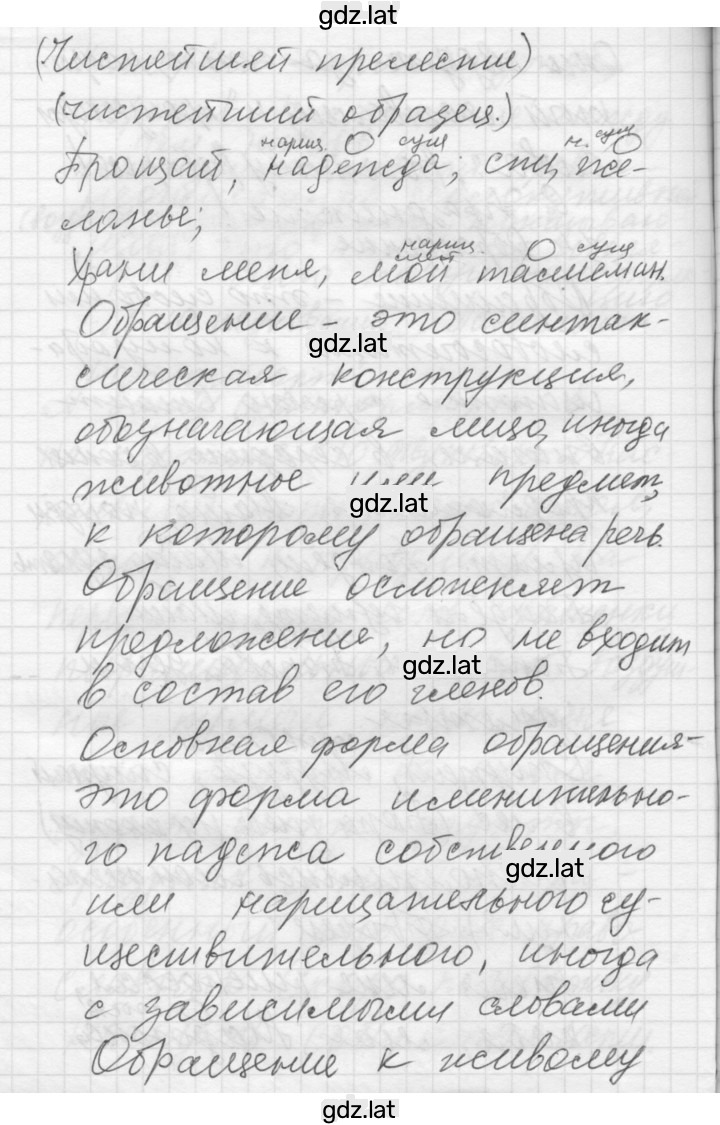 gdz.lat
(Чистейшей прелести)
(чистейший образец.)
нариц. О сущ н. сущ О
Прощай, надежда; спи, же-
ланье;
нариц. О сущ
мест
Храни меня, мой талисман.
Обращение - это синтак-
gdz.lat
сическая конструкция,
обозначающая лицо, иногда
животное или предмет,
gdz.lat
к которому обращена речь.
Обращение осложняет
предложение, но не входит
gdz.lat
в состав его членов.
Основная форма обращения-
это форма именительно-
го падежа собственного
gdz.lat
или нарицательного су-
ществительного, иногда
с зависимыми словами
Обращение к живому
gdz.lat